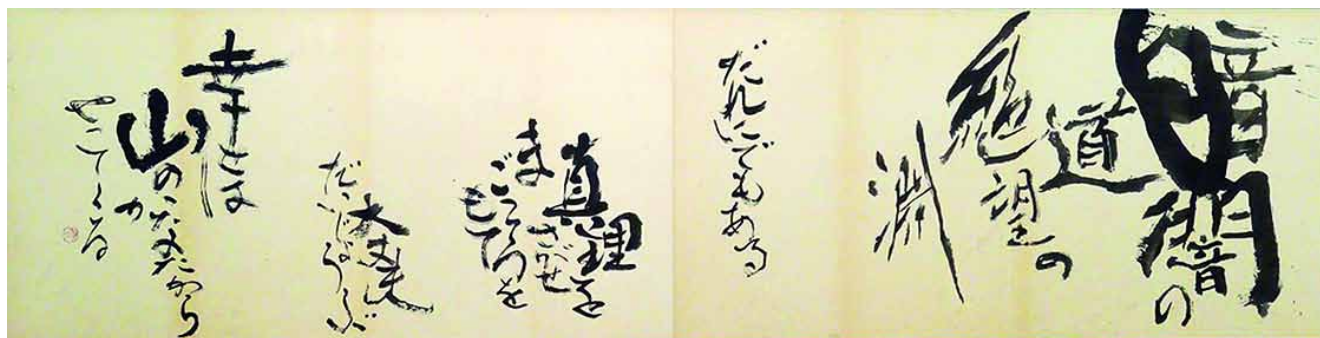 暗闇の
道
絶望の
淵
だれにでもある
真理を
めざせ
まごころを
もて
大丈夫
だいじょうぶ
幸とは
山のかなたから
やってくる